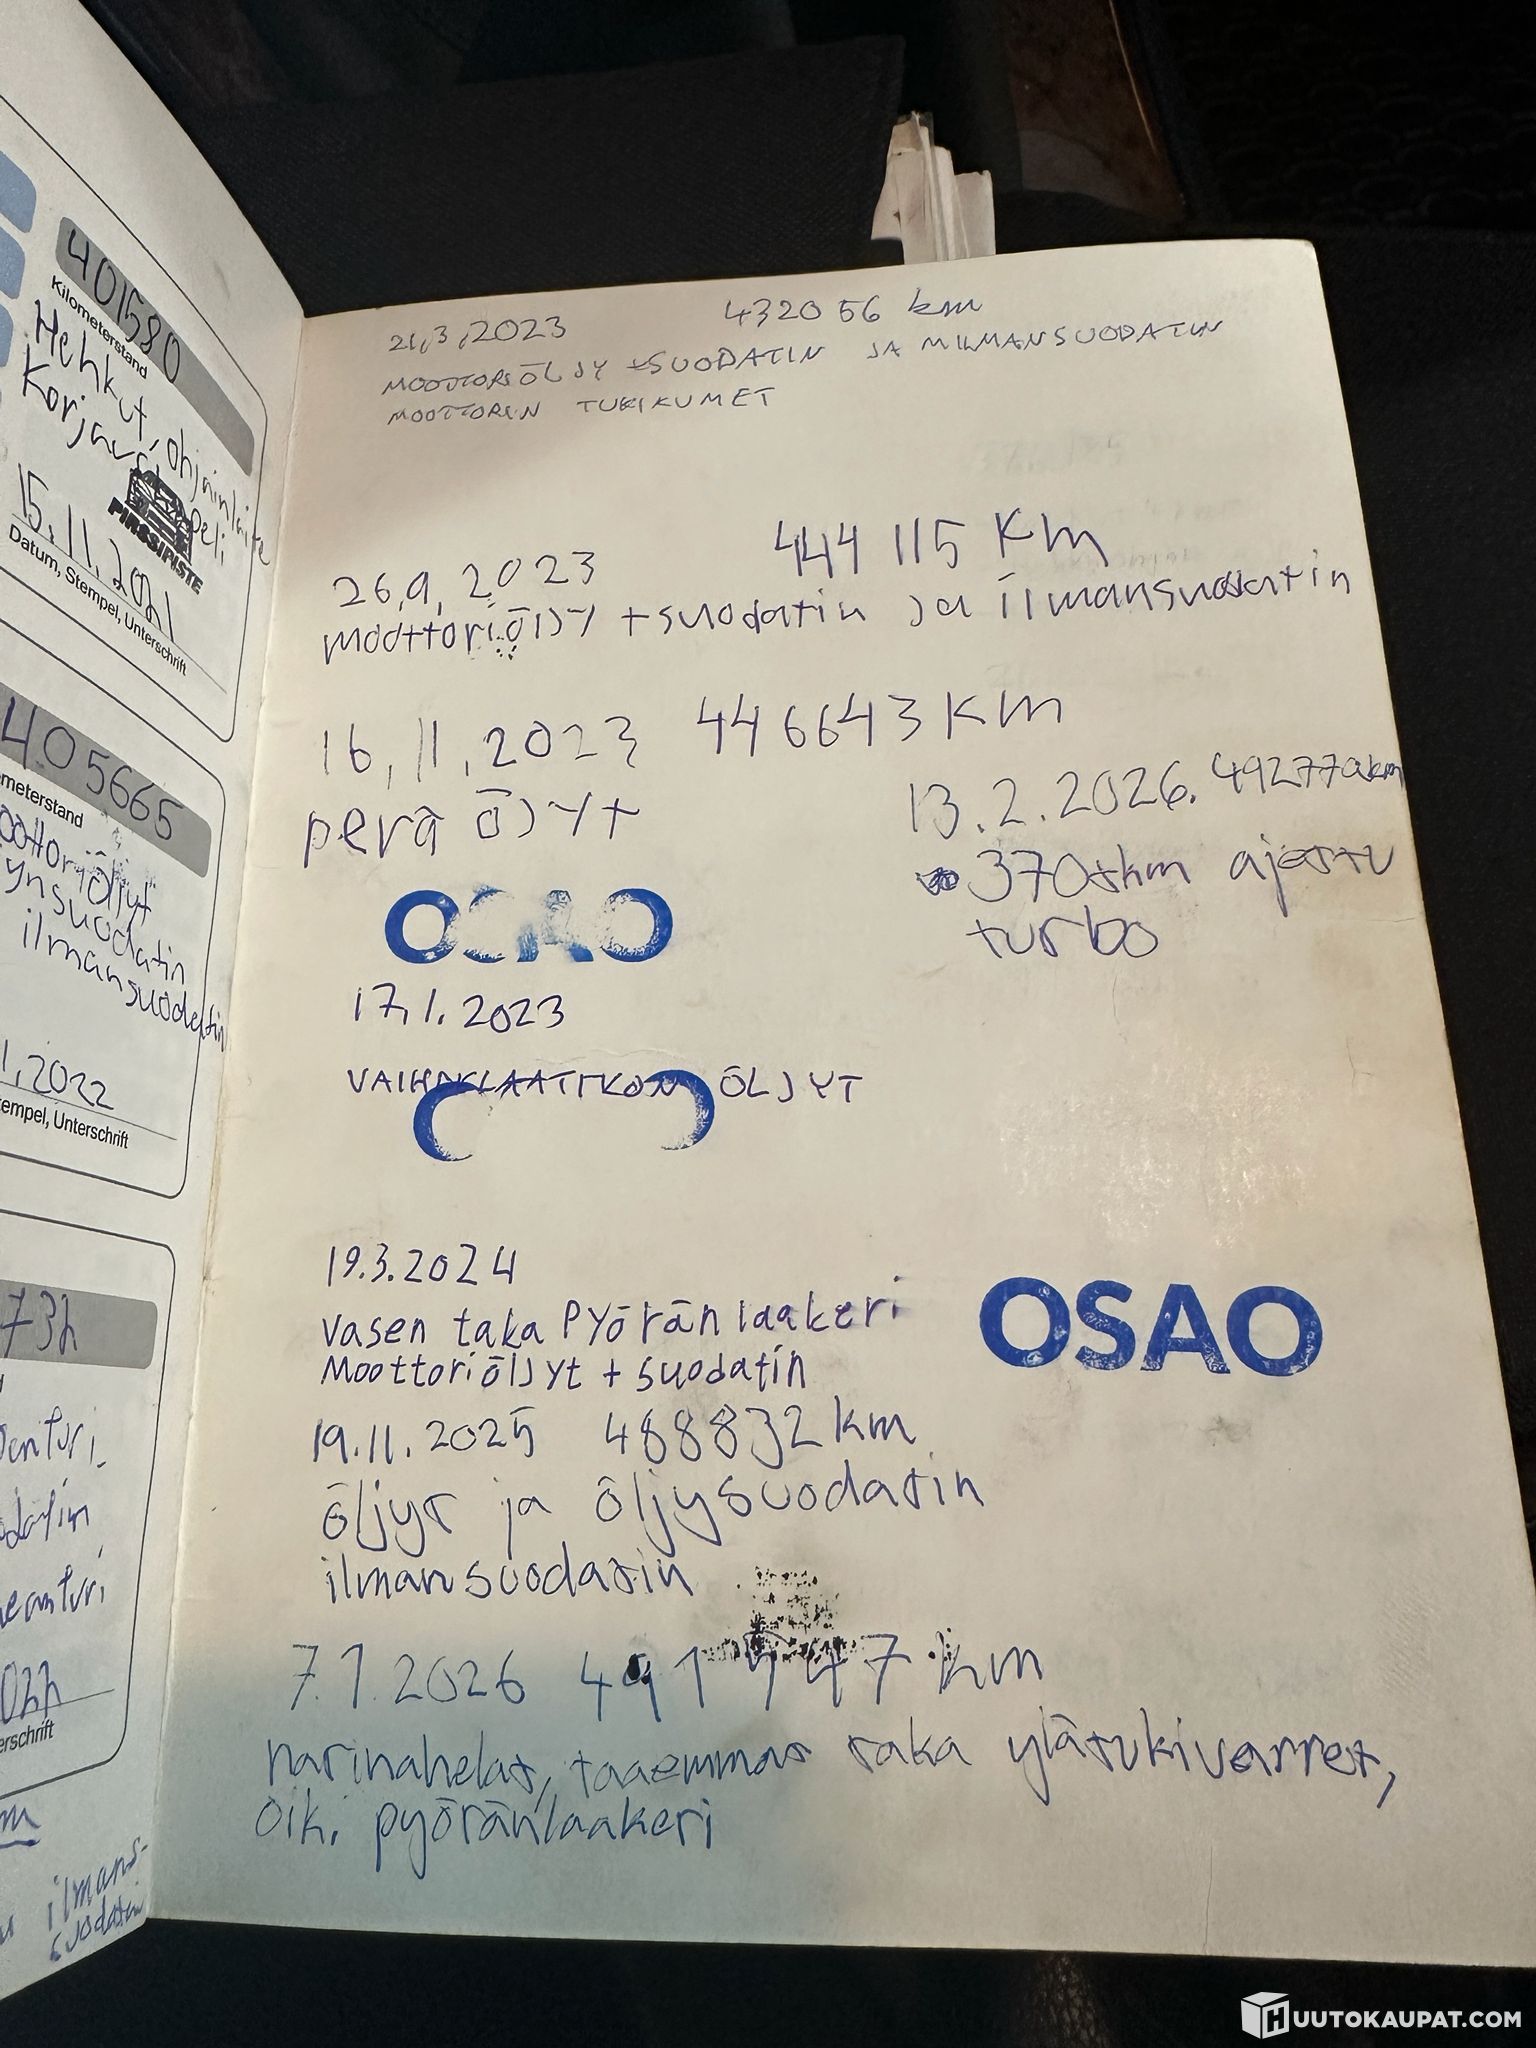 401580
Kilometerstand
Hehkut, ohjainlaite
Korjaus
Peli
PIRSSIPISTE
15.11.2021
Datum, Stempel, Unterschrift
405665
meterstand
oottoriöljyt
ynsuodatin
ilmansuodatin
1.2022
empel, Unterschrift
73h
enturi
odatin
eanturi
022
erschrift
m
ilmans-
suodatin
21.3.2023 432056 km
MOOTTORIÖLJY +SUODATIN JA MILMANSUODATIN
MOOTTORIN TUKIKUMET
26.9.2023 444 115 KM
moottoriöljyt +suodatin ja ilmansuodatin
16.11.2023 446643 KM
perä öljyt
13.2.2026. 492770km
370tkm ajettu
turbo
OSAO
17.1.2023
VAIHDELAATIKON ÖLJYT
19.3.2024
vasen taka Pyöränlaakeri
Moottoriöljyt + suodatin
OSAO
19.11.2025 488832 km
öljyt ja öljysuodatin
ilmansuodatin
7.1.2026 491747 km
narinahelat, taaemmat taka ylätukivarret,
Oik. pyöränlaakeri
HUUTOKAUPAT.COM